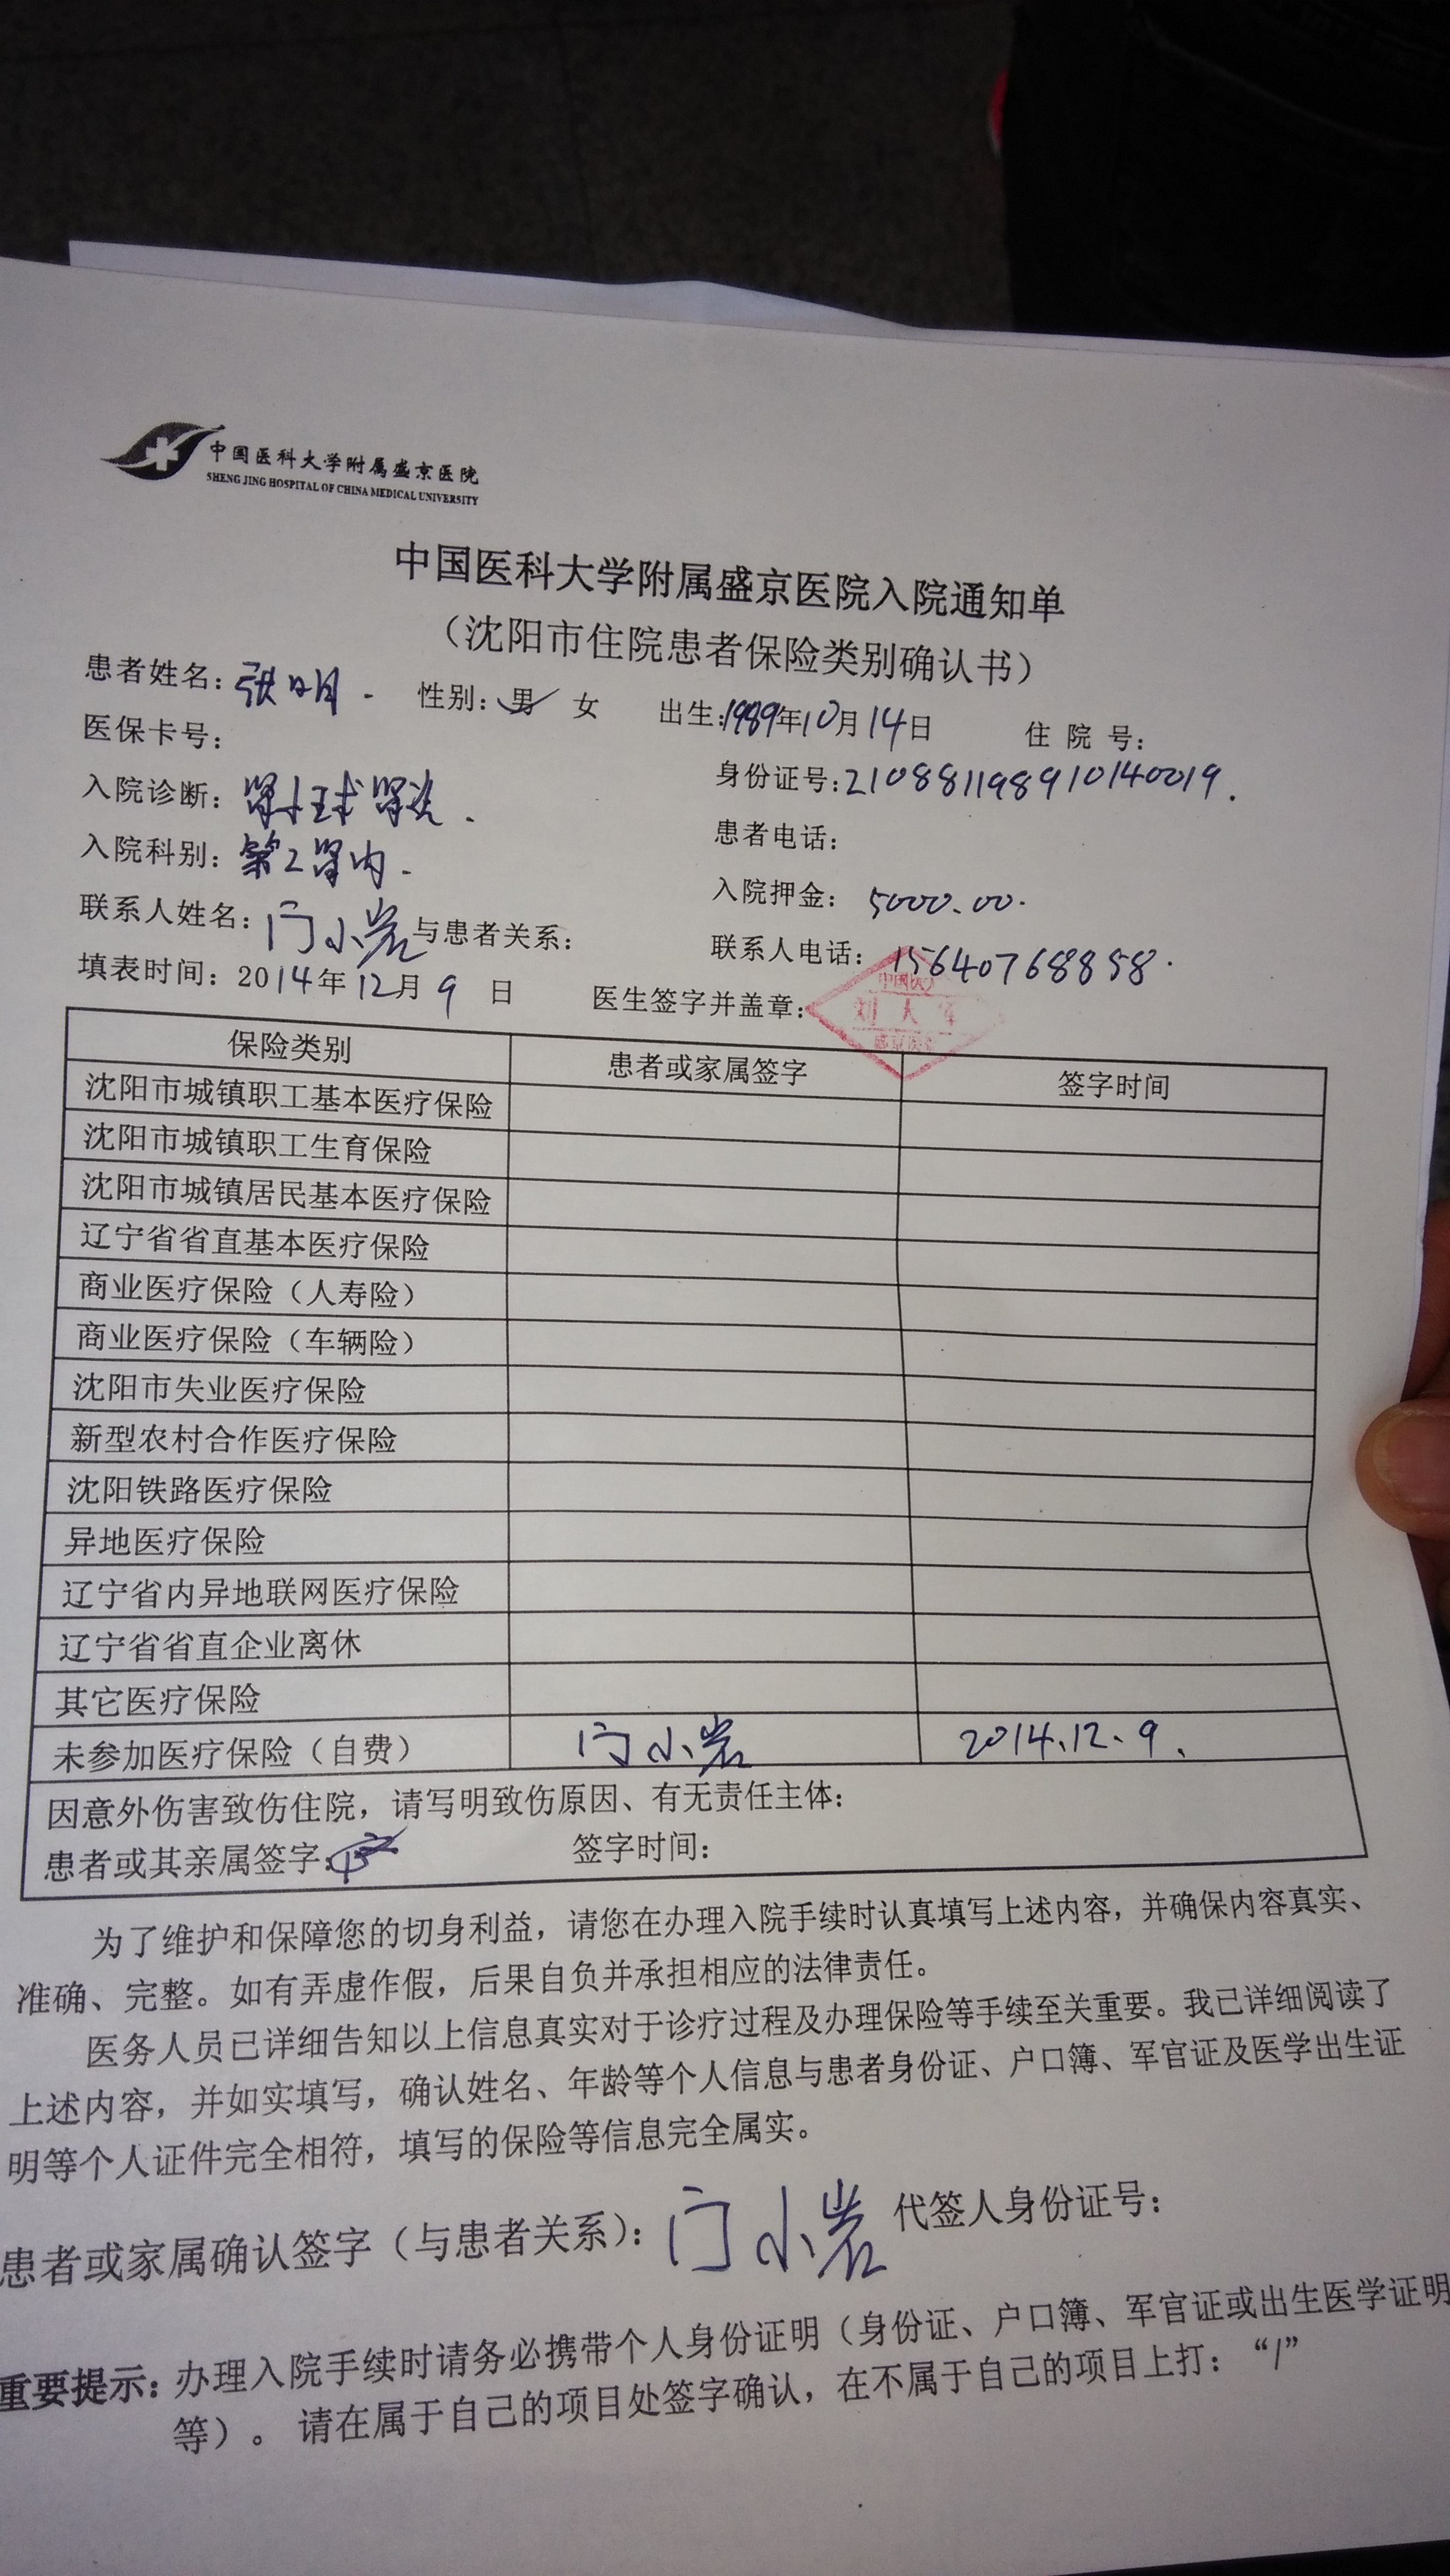 中国医科大学附属盛京医院
SHENG JING HOSPITAL OF CHINA MEDICAL UNIVERSITY
中国医科大学附属盛京医院入院通知单
（沈阳市住院患者保险类别确认书）
患者姓名：张明. 性别：男✓ 女 出生：1989年10月14日 住 院 号：
医保卡号： 身份证号：210881198910140019.
入院诊断：肾小球肾炎. 患者电话：
入院科别：第2肾内. 入院押金：5000.00.
联系人姓名：门小岩 与患者关系： 联系人电话：15640768858.
填表时间：2014年12月9日 医生签字并盖章：
保险类别 患者或家属签字 签字时间
沈阳市城镇职工基本医疗保险
沈阳市城镇职工生育保险
沈阳市城镇居民基本医疗保险
辽宁省省直基本医疗保险
商业医疗保险（人寿险）
商业医疗保险（车辆险）
沈阳市失业医疗保险
新型农村合作医疗保险
沈阳铁路医疗保险
异地医疗保险
辽宁省内异地联网医疗保险
辽宁省省直企业离休
其它医疗保险
未参加医疗保险（自费） 门小岩 2014.12.9.
因意外伤害致伤住院，请写明致伤原因、有无责任主体：
患者或其亲属签字： 签字时间：
为了维护和保障您的切身利益，请您在办理入院手续时认真填写上述内容，并确保内容真实、
准确、完整。如有弄虚作假，后果自负并承担相应的法律责任。
医务人员已详细告知以上信息真实对于诊疗过程及办理保险等手续至关重要。我已详细阅读了
上述内容，并如实填写，确认姓名、年龄等个人信息与患者身份证、户口簿、军官证及医学出生证
明等个人证件完全相符，填写的保险等信息完全属实。
患者或家属确认签字（与患者关系）：门小岩 代签人身份证号：
重要提示：办理入院手续时请务必携带个人身份证明（身份证、户口簿、军官证或出生医学证明
等）。 请在属于自己的项目处签字确认，在不属于自己的项目上打：“/”